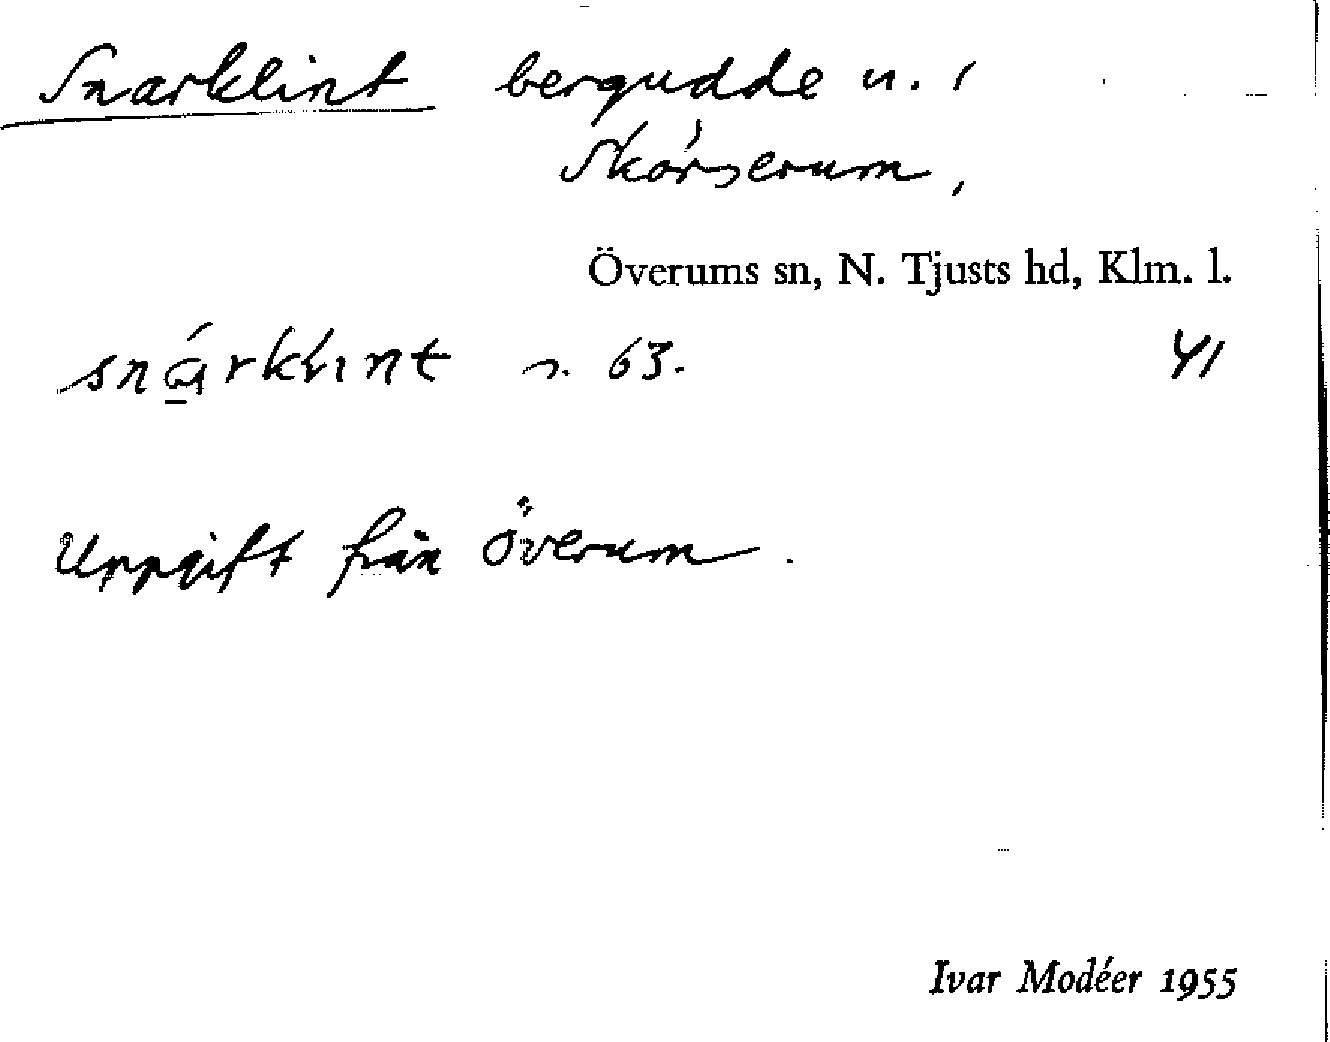 Snarklint bergudde u. i
Skörserum,
Överums sn, N. Tjusts hd, Klm. l.
s. 63. 41
Uppgift från Överum.
Ivar Modéer 1955